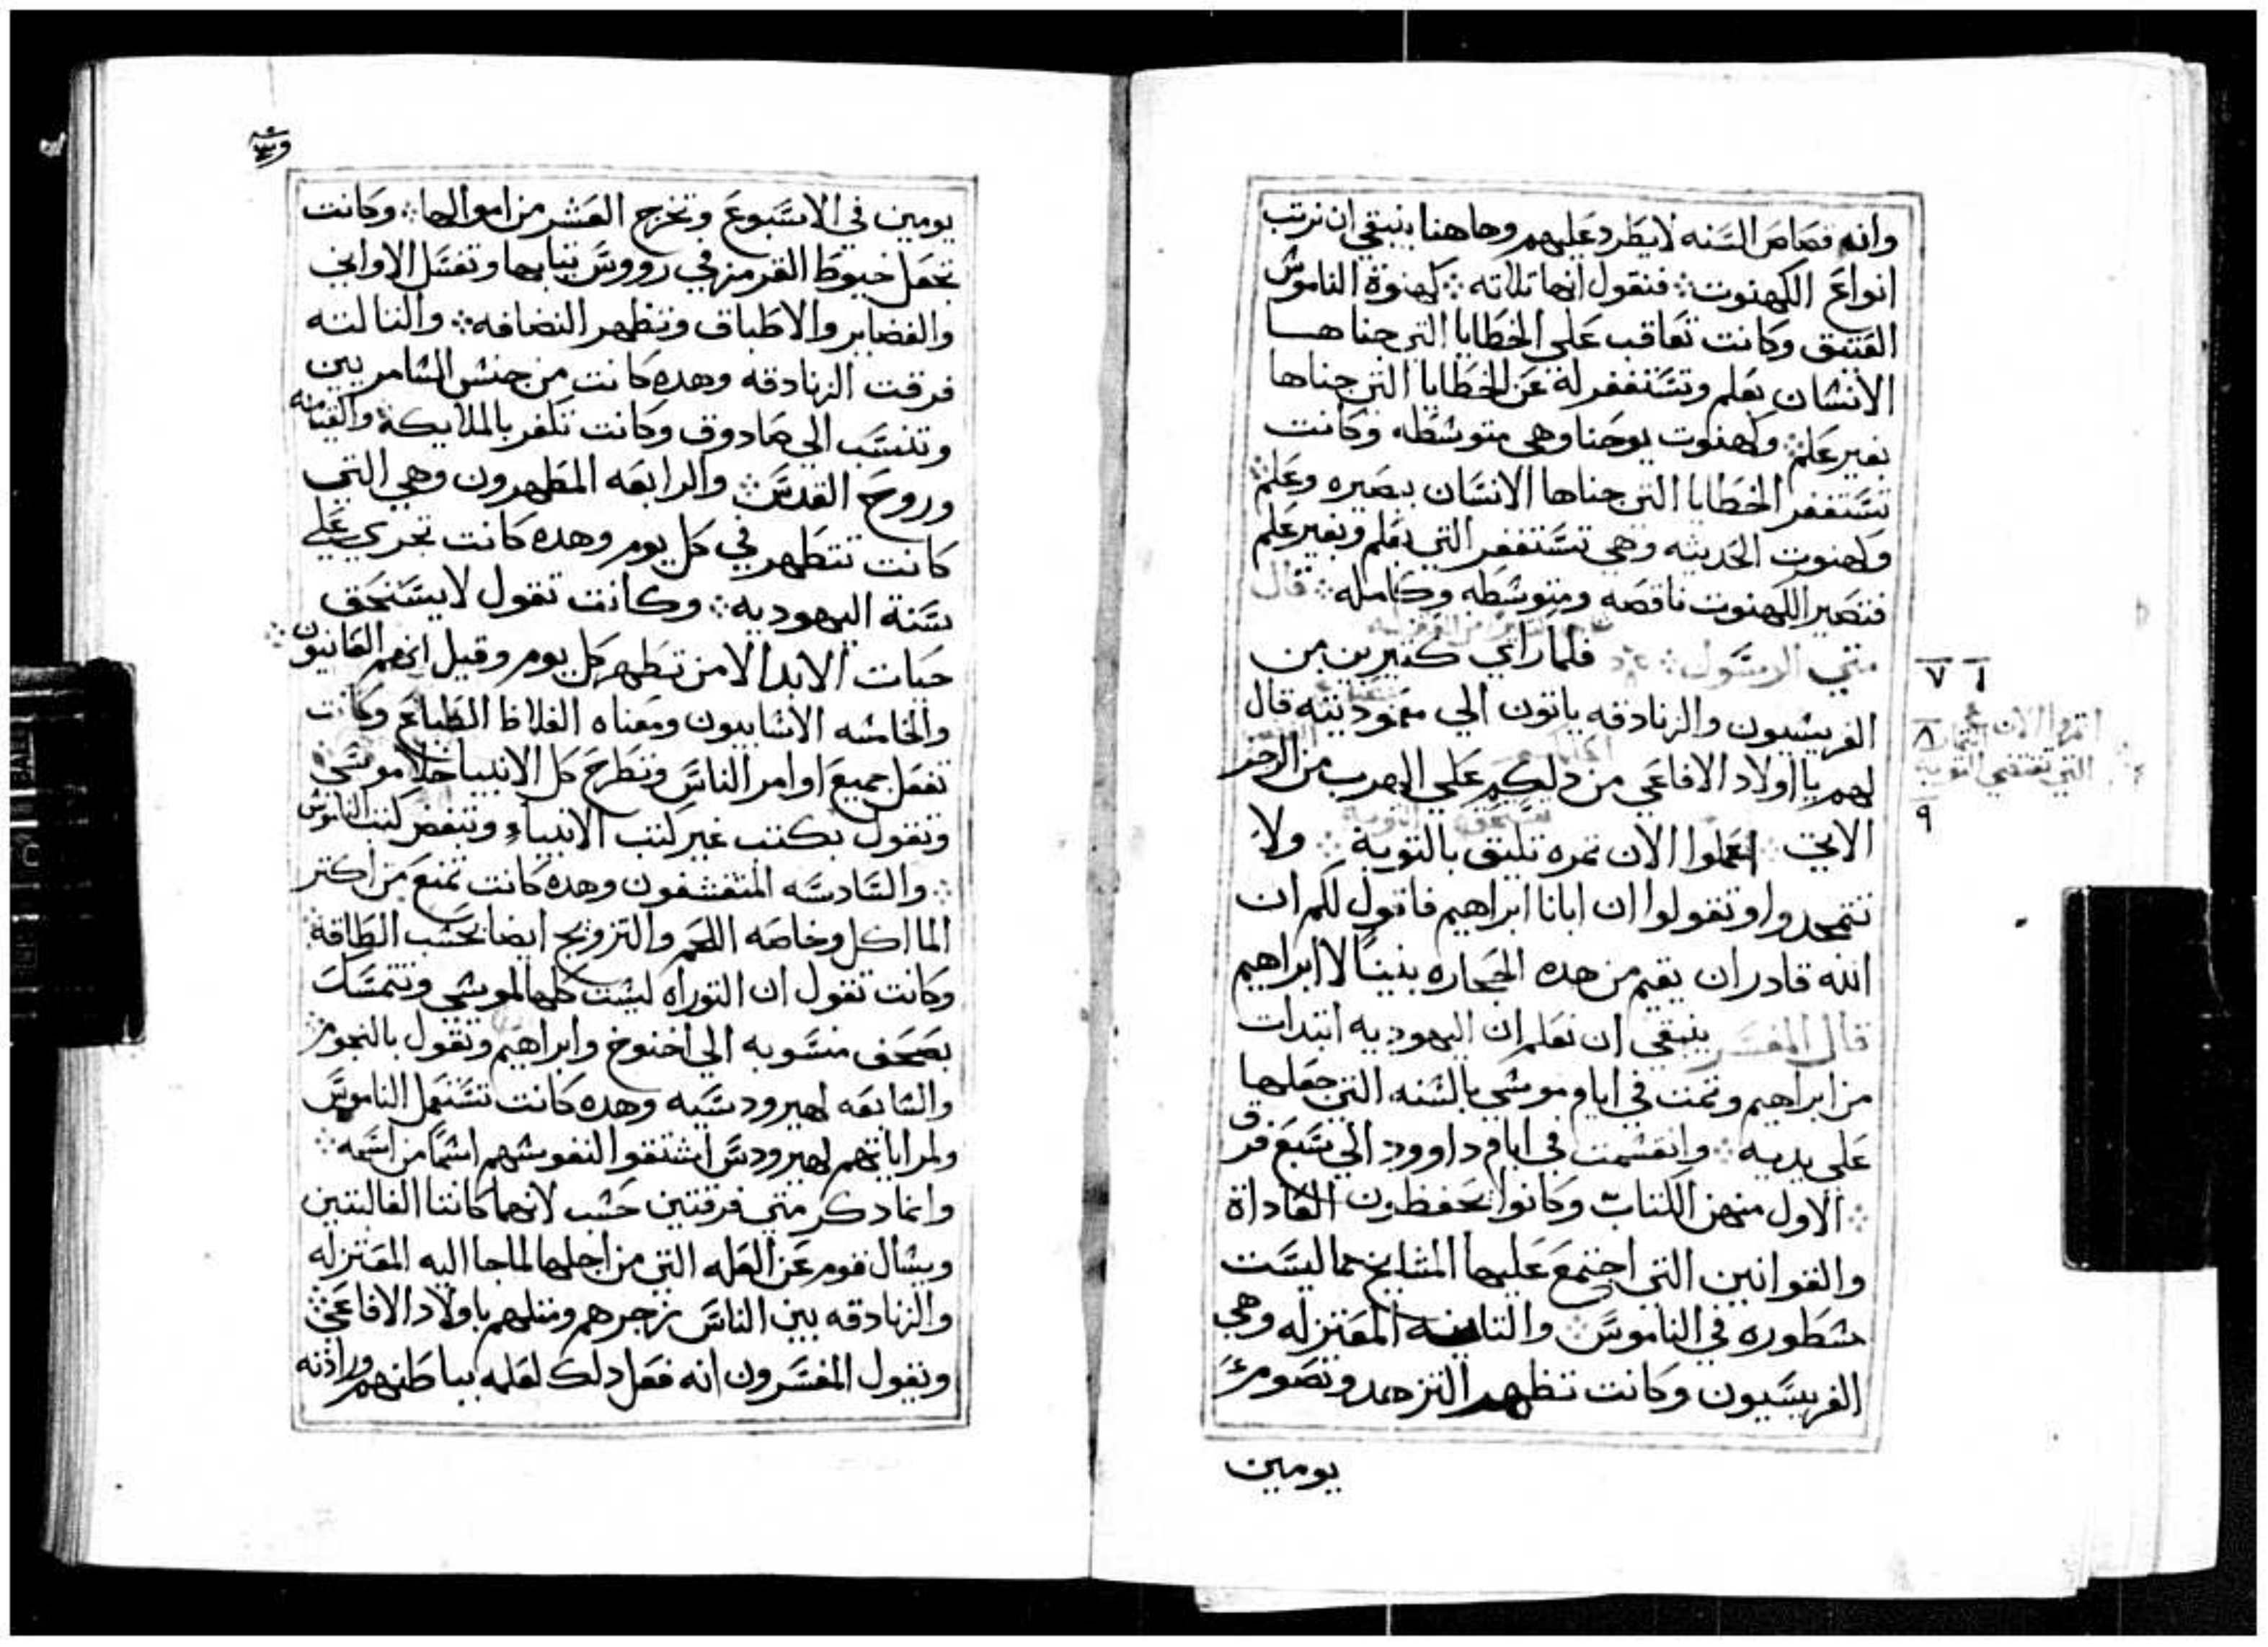 وانه قصاص السنه لا يطرد عليهم وهاهنا ينبغي ان نرتب
انواع الكهنوت فنقول انها تلاته كهنوة الناموس
العتيق وكانت تعاقب علي الخطايا التي جناها
الانسان بعلم وتستغفر له عن الخطايا التي جناها
بغير علم وكهنوت يوحنا وهي متوسطه وكانت
تستغفر الخطايا التي جناها الانسان ببصيره وعلم
وكهنوت الحديثه وهي تستغفر التي بعلم وبغير علم
فتصير الكهنوت ناقصه ومتوسطه وكامله قال
متي الرسول فلما راي كتيرين من
الفريسيون والزنادقه ياتون الي معموديته قال
لهم يا اولاد الافاعي من دلكم علي الهرب من الرجز
الاتي اعملوا الان تمره تليق بالتوبة ولا
تتمجدوا وتقولوا ان ابانا ابراهيم فاقول لكم ان
الله قادر ان يقيم من هده الحجاره بنينًا لابراهيم
قال المفسر ينبغي ان نعلم ان اليهوديه ابتدات
من ابراهيم وتمت في ايام موسي بالسنه التي جعلها
علي يديه وانقسمت في ايام داوود الي سبع فرق
الاول منهن الكتاب وكانوا يحفظون العاداة
والقوانين التي اجتمع عليها المشايخ مما ليست
مسطوره في الناموس والتانيه المعتزله وهي
الفريسيون وكانت تظهر التزهد وتصوم
يومين
٦ ٧
٨
اتمروا الان
التي تقتضي التوبه
٩
يومين في الاسبوع وتخرج العشر من اموالها وكانت
تجعل خيوط القرمز في رووس تيابها وتغسل الاواني
والغضاير والاطباق وتظهر النضافه والتالته
فرقت الزنادقه وهده كانت من جنس السامريين
وتنسب الي صادوق وكانت تكفر بالملايكة والقيامه
وروح القدس والرابعه المطهرون وهي التي
كانت تتطهر في كل يوم وهده كانت تجري علي
سنة اليهوديه وكانت تقول لا يستحق
حيات الابد الا من تطهر كل يوم وقيل انهم القانيون
والخامسه الاسابيون ومعناه الغلاظ الطباع وكانت
تفعل جميع اوامر الناس وتطرح كل الانبيا خلا موسي
وتقول بكتب غير كتب الانبياء وتبغض كتب الناموس
والسادسه المتقشفون وهده كانت تمنع من اكتر
الماكل وخاصه اللحم والتزويج ايضا بحسب الطاقة
وكانت تقول ان التوراه ليست كلها لموسي وتتمسك
بصحف منسوبه الي اخنوخ وابراهيم وتقول بالنجوم
والسابعه لهيرودسيه وهده كانت تستعمل الناموس
ولمراياتهم لهيرودس اشتقوا لنفوسهم اسمًا من اسمه
وانما دكر متي فرقتين حسب لانهما كانتا الغالبتين
ويسال قوم عن العله التي من اجلها لما جا اليه المعتزله
والزنادقه بين الناس زجرهم ومتلهم باولاد الافاعي
ويقول المفسرون انه فعل دلك لعلمه بباطنهم